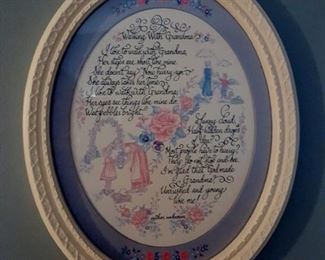 Walking With Grandma
I like to walk with Grandma,
Her steps are short like mine.
She doesn't say "Now hurry up"
She always takes her time.
I like to walk with Grandma,
Her eyes see things like mine do
Wee pebbles bright,
Funny cloud,
Half hidden drops
of dew.
Most people have to hurry,
They do not stop and see.
I'm glad that God made
Grandma
Unrushed and young
like me!
author unknown